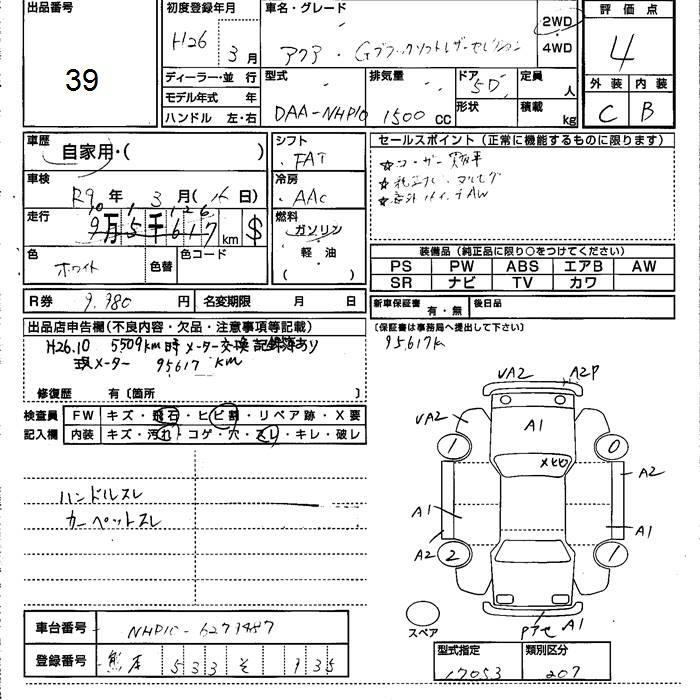 出品番号
39
初度登録年月
H26 3月
車名・グレード
アクア・Gブラックソフトレザーセレクション
2WD
・
4WD
評価点
4
外装 内装
C B
ディーラー・並行
モデル年式 年
ハンドル 左・右
型式
DAA-NHP10
排気量
1500 CC
ドア
5D
形状
定員
人
積載
kg
車歴
自家用・( )
車検
R9年 3月( 日)
走行
km $
色
ホワイト
色替
色コード
シフト
FAT
冷房
AAC
燃料
ガソリン
軽油
( )
セールスポイント(正常に機能するものに限ります)
装備品(純正品に限り○をつけてください)
PS PW ABS エアB AW
SR ナビ TV カワ
R券 9.980円 名変期限 月 日
新車保証書 有・無 後日品
(保証書は事務局へ提出して下さい)
95617K
出品店申告欄(不良内容・欠品・注意事項等記載)
H26.10 5509km時 メーター交換 記録簿あり
現メーター 95617 KM
修復歴 有〔箇所 〕
検査員
記入欄
FW キズ・飛石・ヒビ割・リペア跡・X要
内装 キズ・汚れ・コゲ・穴・スレ・キレ・破レ
ハンドルスレ
カーペットスレ
VA2 A2P
VA2 A1
1 0
A2
A1 A1
A2 2 1
スペア
A1
車台番号 NHP10-6271487
登録番号 熊本 533 そ 135
型式指定 類別区分
17053 207